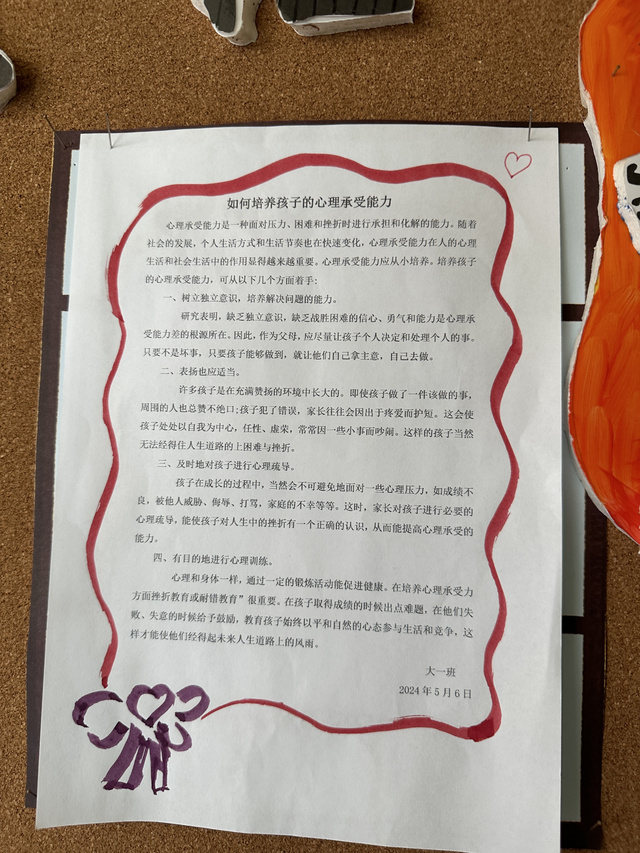 如何培养孩子的心理承受能力
心理承受能力是一种面对压力、困难和挫折时进行承担和化解的能力。随着
社会的发展，个人生活方式和生活节奏也在快速变化，心理承受能力在人的心理
生活和社会生活中的作用显得越来越重要。心理承受能力应从小培养。培养孩子
的心理承受能力，可从以下几个方面着手:
一、树立独立意识，培养解决问题的能力。
研究表明，缺乏独立意识，缺乏战胜困难的信心、勇气和能力是心理承
受能力差的根源所在。因此，作为父母，应尽量让孩子个人决定和处理个人的事。
只要不是坏事，只要孩子能够做到，就让他们自己拿主意，自己去做。
二、表扬也应适当。
许多孩子是在充满赞扬的环境中长大的。即使孩子做了一件该做的事，
周围的人也总赞不绝口;孩子犯了错误，家长往往会因出于疼爱而护短。这会使
孩子处处以自我为中心，任性、虚荣，常常因一些小事而吵闹。这样的孩子当然
无法经得住人生道路的上困难与挫折。
三、及时地对孩子进行心理疏导。
孩子在成长的过程中，当然会不可避免地面对一些心理压力，如成绩不
良，被他人威胁、侮辱、打骂，家庭的不幸等等。这时，家长对孩子进行必要的
心理疏导，能使孩子对人生中的挫折有一个正确的认识，从而能提高心理承受的
能力。
四、有目的地进行心理训练。
心理和身体一样，通过一定的锻炼活动能促进健康。在培养心理承受力
方面挫折教育或耐错教育”很重要。在孩子取得成绩的时候出点难题，在他们失
败、失意的时候给予鼓励，教育孩子始终以平和自然的心态参与生活和竞争，这
样才能使他们经得起未来人生道路上的风雨。
大一班
2024年5月6日